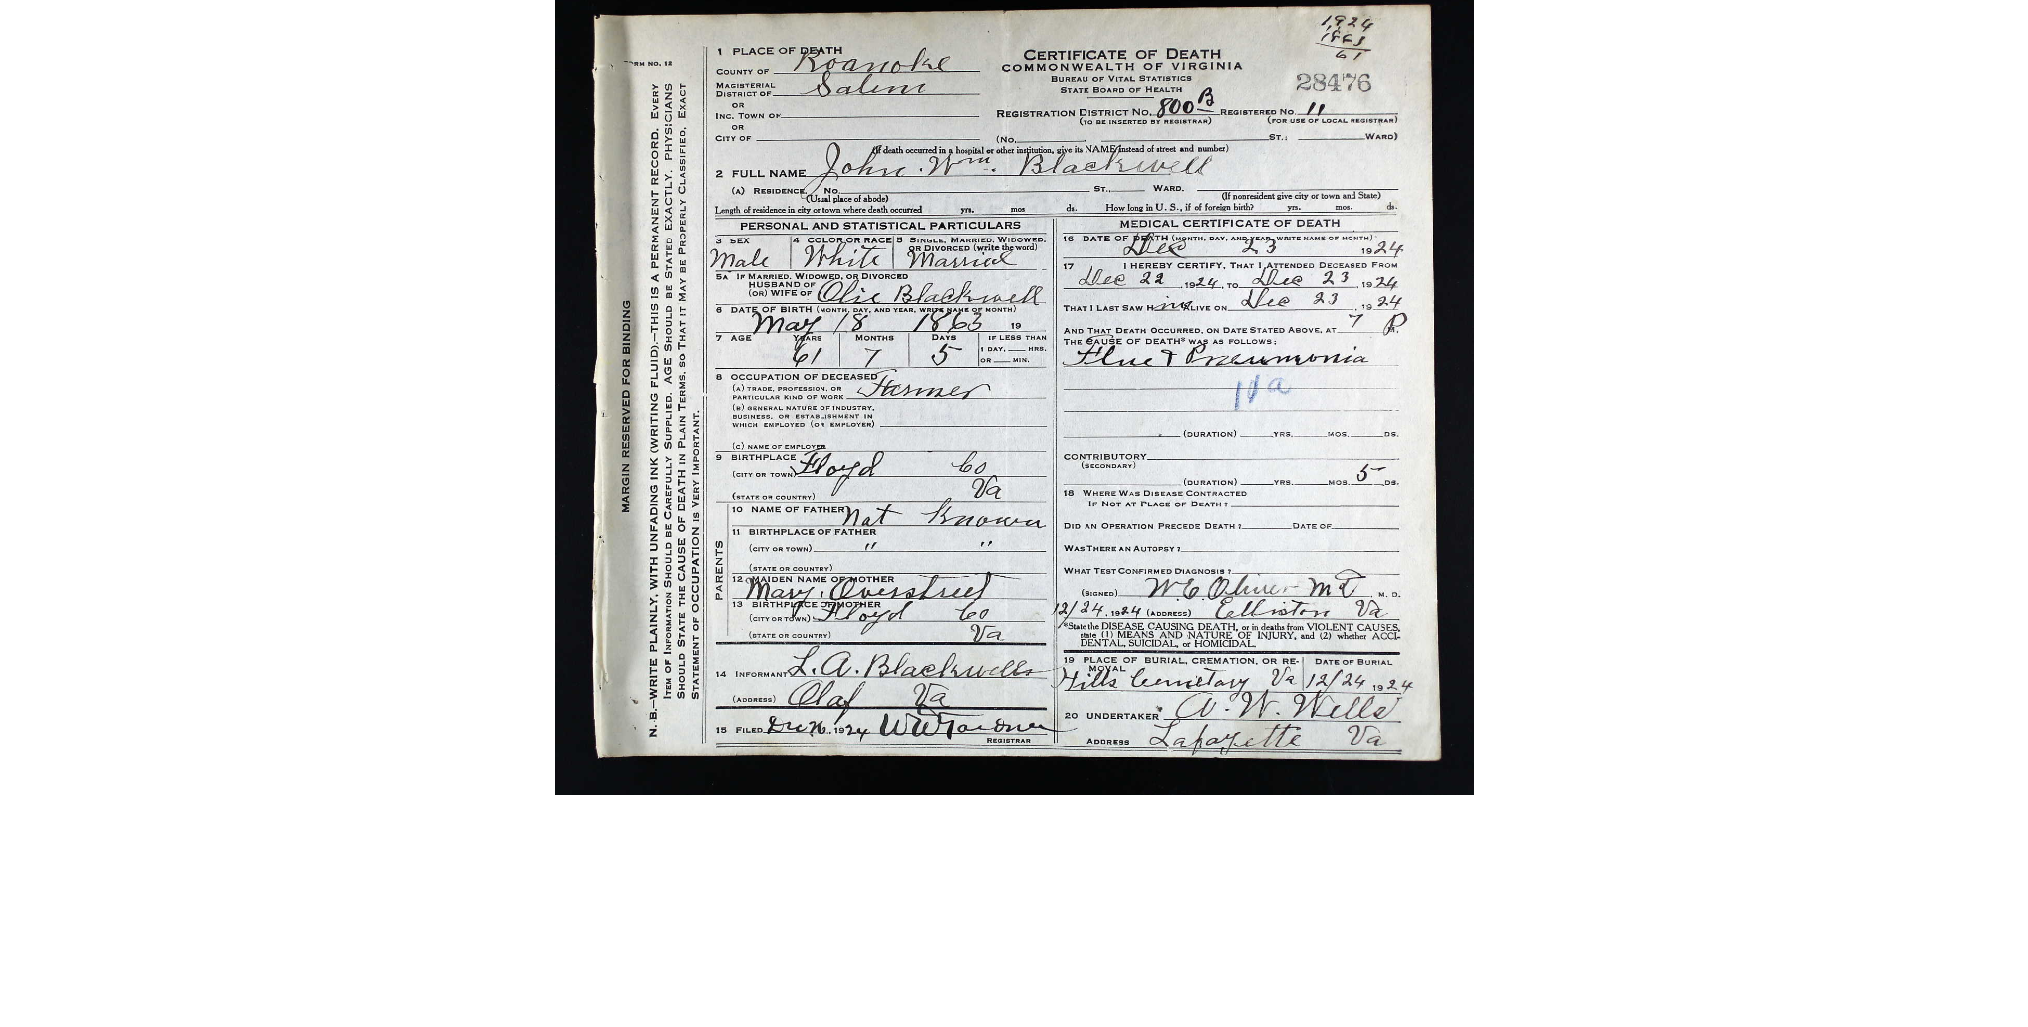 1924
1863
61
FORM NO. 12
1 PLACE OF DEATH
COUNTY OF Roanoke
MAGISTERIAL
DISTRICT OF Salem
OR
INC. TOWN OF
OR
CITY OF
CERTIFICATE OF DEATH
COMMONWEALTH OF VIRGINIA
BUREAU OF VITAL STATISTICS
STATE BOARD OF HEALTH
28476
REGISTRATION DISTRICT NO. 800B REGISTERED NO. 11
(TO BE INSERTED BY REGISTRAR) (FOR USE OF LOCAL REGISTRAR)
(No. ST.; WARD)
(If death occurred in a hospital or other institution, give its NAME instead of street and number)
2 FULL NAME John Wm. Blackwell
(A) RESIDENCE. No. ST., WARD.
(Usual place of abode) (If nonresident give city or town and State)
Length of residence in city or town where death occurred yrs. mos ds. How long in U. S., if of foreign birth? yrs. mos. ds.
PERSONAL AND STATISTICAL PARTICULARS
3 SEX 4 COLOR OR RACE 5 SINGLE, MARRIED, WIDOWED,
OR DIVORCED (write the word)
Male White Married
5A IF MARRIED, WIDOWED, OR DIVORCED
HUSBAND OF
(OR) WIFE OF Olie Blackwell
6 DATE OF BIRTH (MONTH, DAY, AND YEAR, WRITE NAME OF MONTH)
May 18 1863 19
7 AGE YEARS MONTHS DAYS IF LESS THAN
61 7 5 1 DAY, HRS.
OR MIN.
8 OCCUPATION OF DECEASED
(A) TRADE, PROFESSION, OR
PARTICULAR KIND OF WORK Farmer
(B) GENERAL NATURE OF INDUSTRY,
BUSINESS, OR ESTABLISHMENT IN
WHICH EMPLOYED (OR EMPLOYER)
(C) NAME OF EMPLOYER
9 BIRTHPLACE
(CITY OR TOWN) Floyd Co
(STATE OR COUNTRY) Va
PARENTS
10 NAME OF FATHER Not Known
11 BIRTHPLACE OF FATHER
(CITY OR TOWN) " "
(STATE OR COUNTRY)
12 MAIDEN NAME OF MOTHER
Mary Overstreet
13 BIRTHPLACE OF MOTHER
(CITY OR TOWN) Floyd Co
(STATE OR COUNTRY) Va
14 INFORMANT L. A. Blackwell
(ADDRESS) Olaf Va
15 FILED Dec 1924
REGISTRAR
MEDICAL CERTIFICATE OF DEATH
16 DATE OF DEATH (MONTH, DAY, AND YEAR, WRITE NAME OF MONTH)
Dec 23 1924
17 I HEREBY CERTIFY, THAT I ATTENDED DECEASED FROM
Dec 22, 1924, TO Dec 23, 1924
THAT I LAST SAW HIM ALIVE ON Dec 23, 1924
AND THAT DEATH OCCURRED, ON DATE STATED ABOVE, AT 7 P M.
THE CAUSE OF DEATH* WAS AS FOLLOWS:
Flue & Pneumonia
11a
(DURATION) YRS. MOS. DS.
CONTRIBUTORY
(SECONDARY)
(DURATION) YRS. MOS. 5 DS.
18 WHERE WAS DISEASE CONTRACTED
IF NOT AT PLACE OF DEATH?
DID AN OPERATION PRECEDE DEATH? DATE OF
WAS THERE AN AUTOPSY?
WHAT TEST CONFIRMED DIAGNOSIS?
(SIGNED) W. C. Oliver MD, M. D.
12/24, 1924 (ADDRESS) Elliston Va
*State the DISEASE CAUSING DEATH, or in deaths from VIOLENT CAUSES,
state (1) MEANS AND NATURE OF INJURY, and (2) whether ACCI-
DENTAL, SUICIDAL, or HOMICIDAL.
19 PLACE OF BURIAL, CREMATION, OR RE-
MOVAL DATE OF BURIAL
Hills Cemetary Va 12/24 1924
20 UNDERTAKER A. W. Wells
ADDRESS Lafayette Va
MARGIN RESERVED FOR BINDING
N. B.—WRITE PLAINLY, WITH UNFADING INK (WRITING FLUID).—THIS IS A PERMANENT RECORD. EVERY
ITEM OF INFORMATION SHOULD BE CAREFULLY SUPPLIED. AGE SHOULD BE STATED EXACTLY. PHYSICIANS
SHOULD STATE THE CAUSE OF DEATH IN PLAIN TERMS, SO THAT IT MAY BE PROPERLY CLASSIFIED. EXACT
STATEMENT OF OCCUPATION IS VERY IMPORTANT.